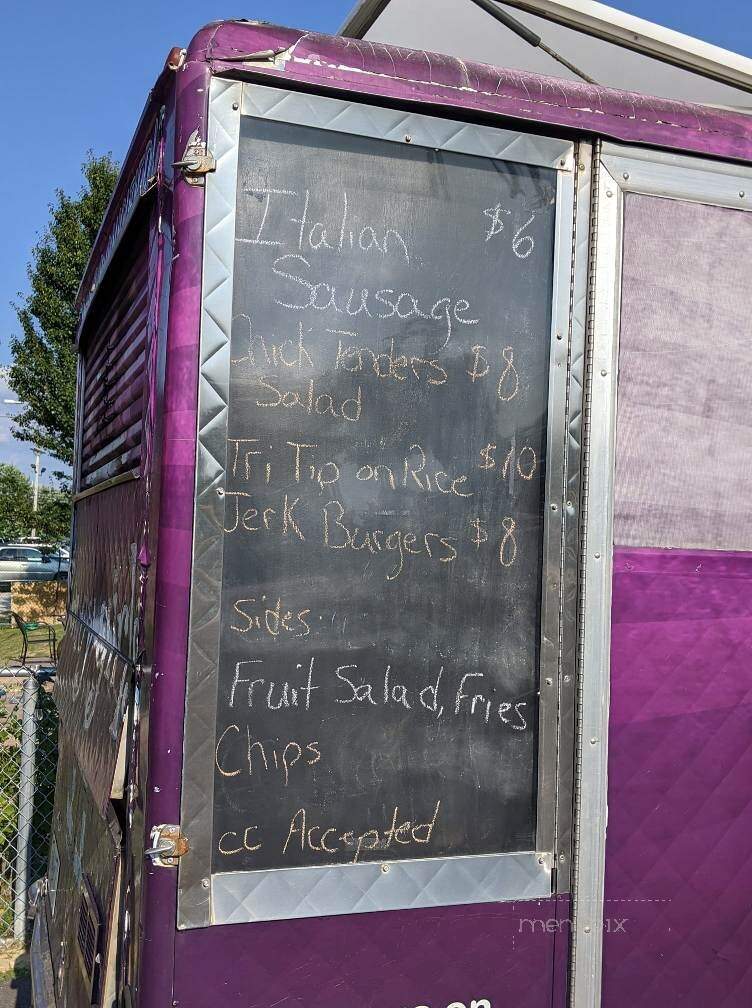 Italian $6
Sausage
Chick Tenders $8
Salad
Tri Tip on Rice $10
Jerk Burgers $8
Sides:
Fruit Salad, Fries
Chips
cc Accepted